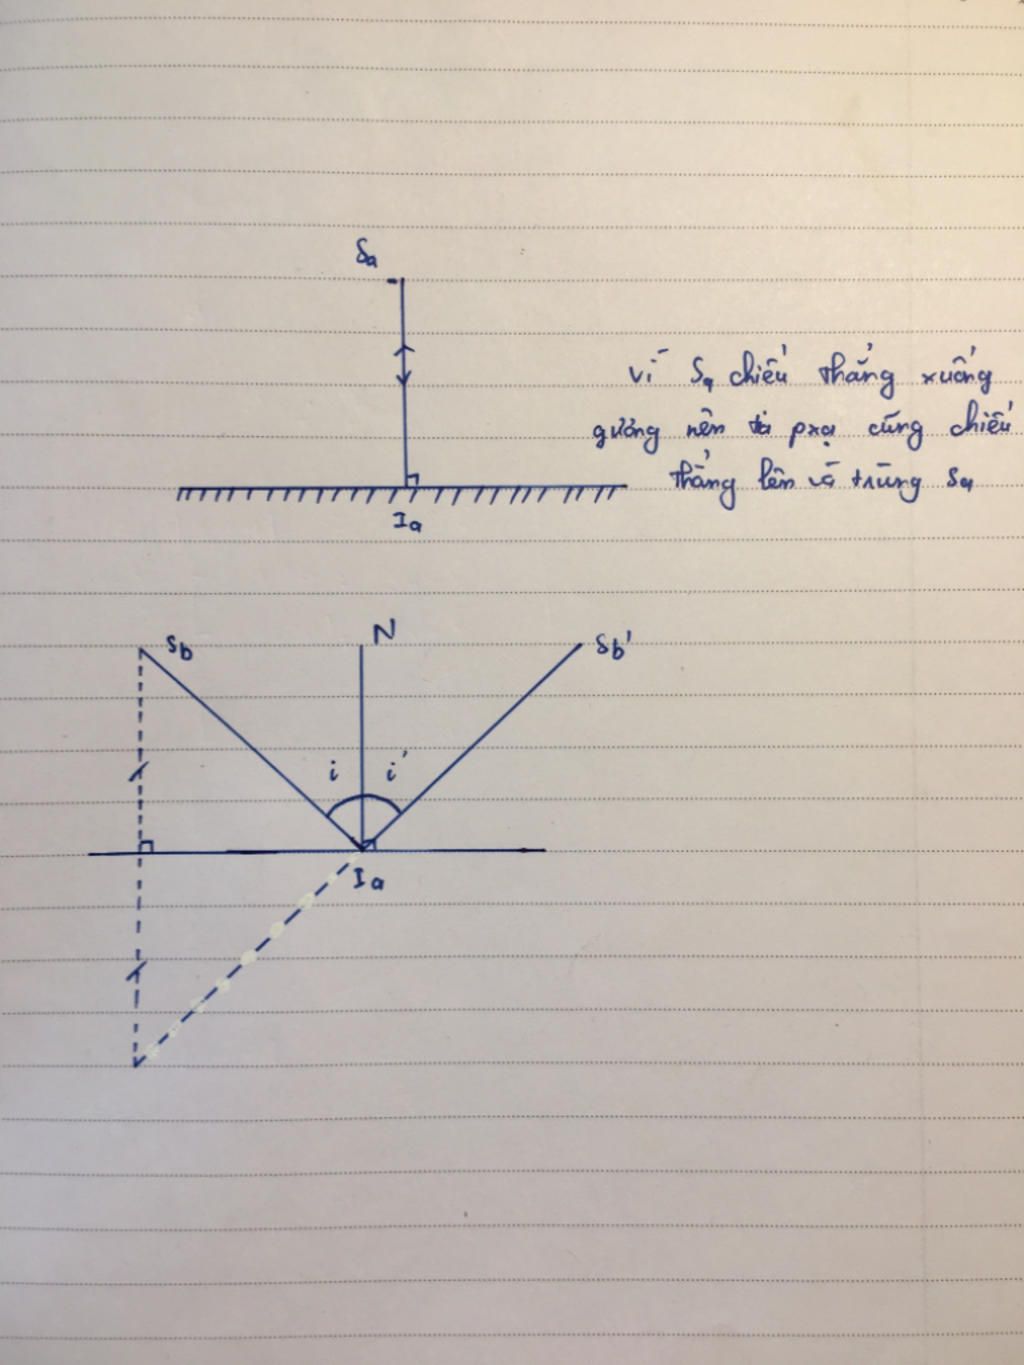 Sa
vì Sa chiếu thẳng xuống
gương nên tia pxạ cũng chiếu
thẳng lên và trùng Sa
Ia
Sb
N
Sb'
i
i'
Ia